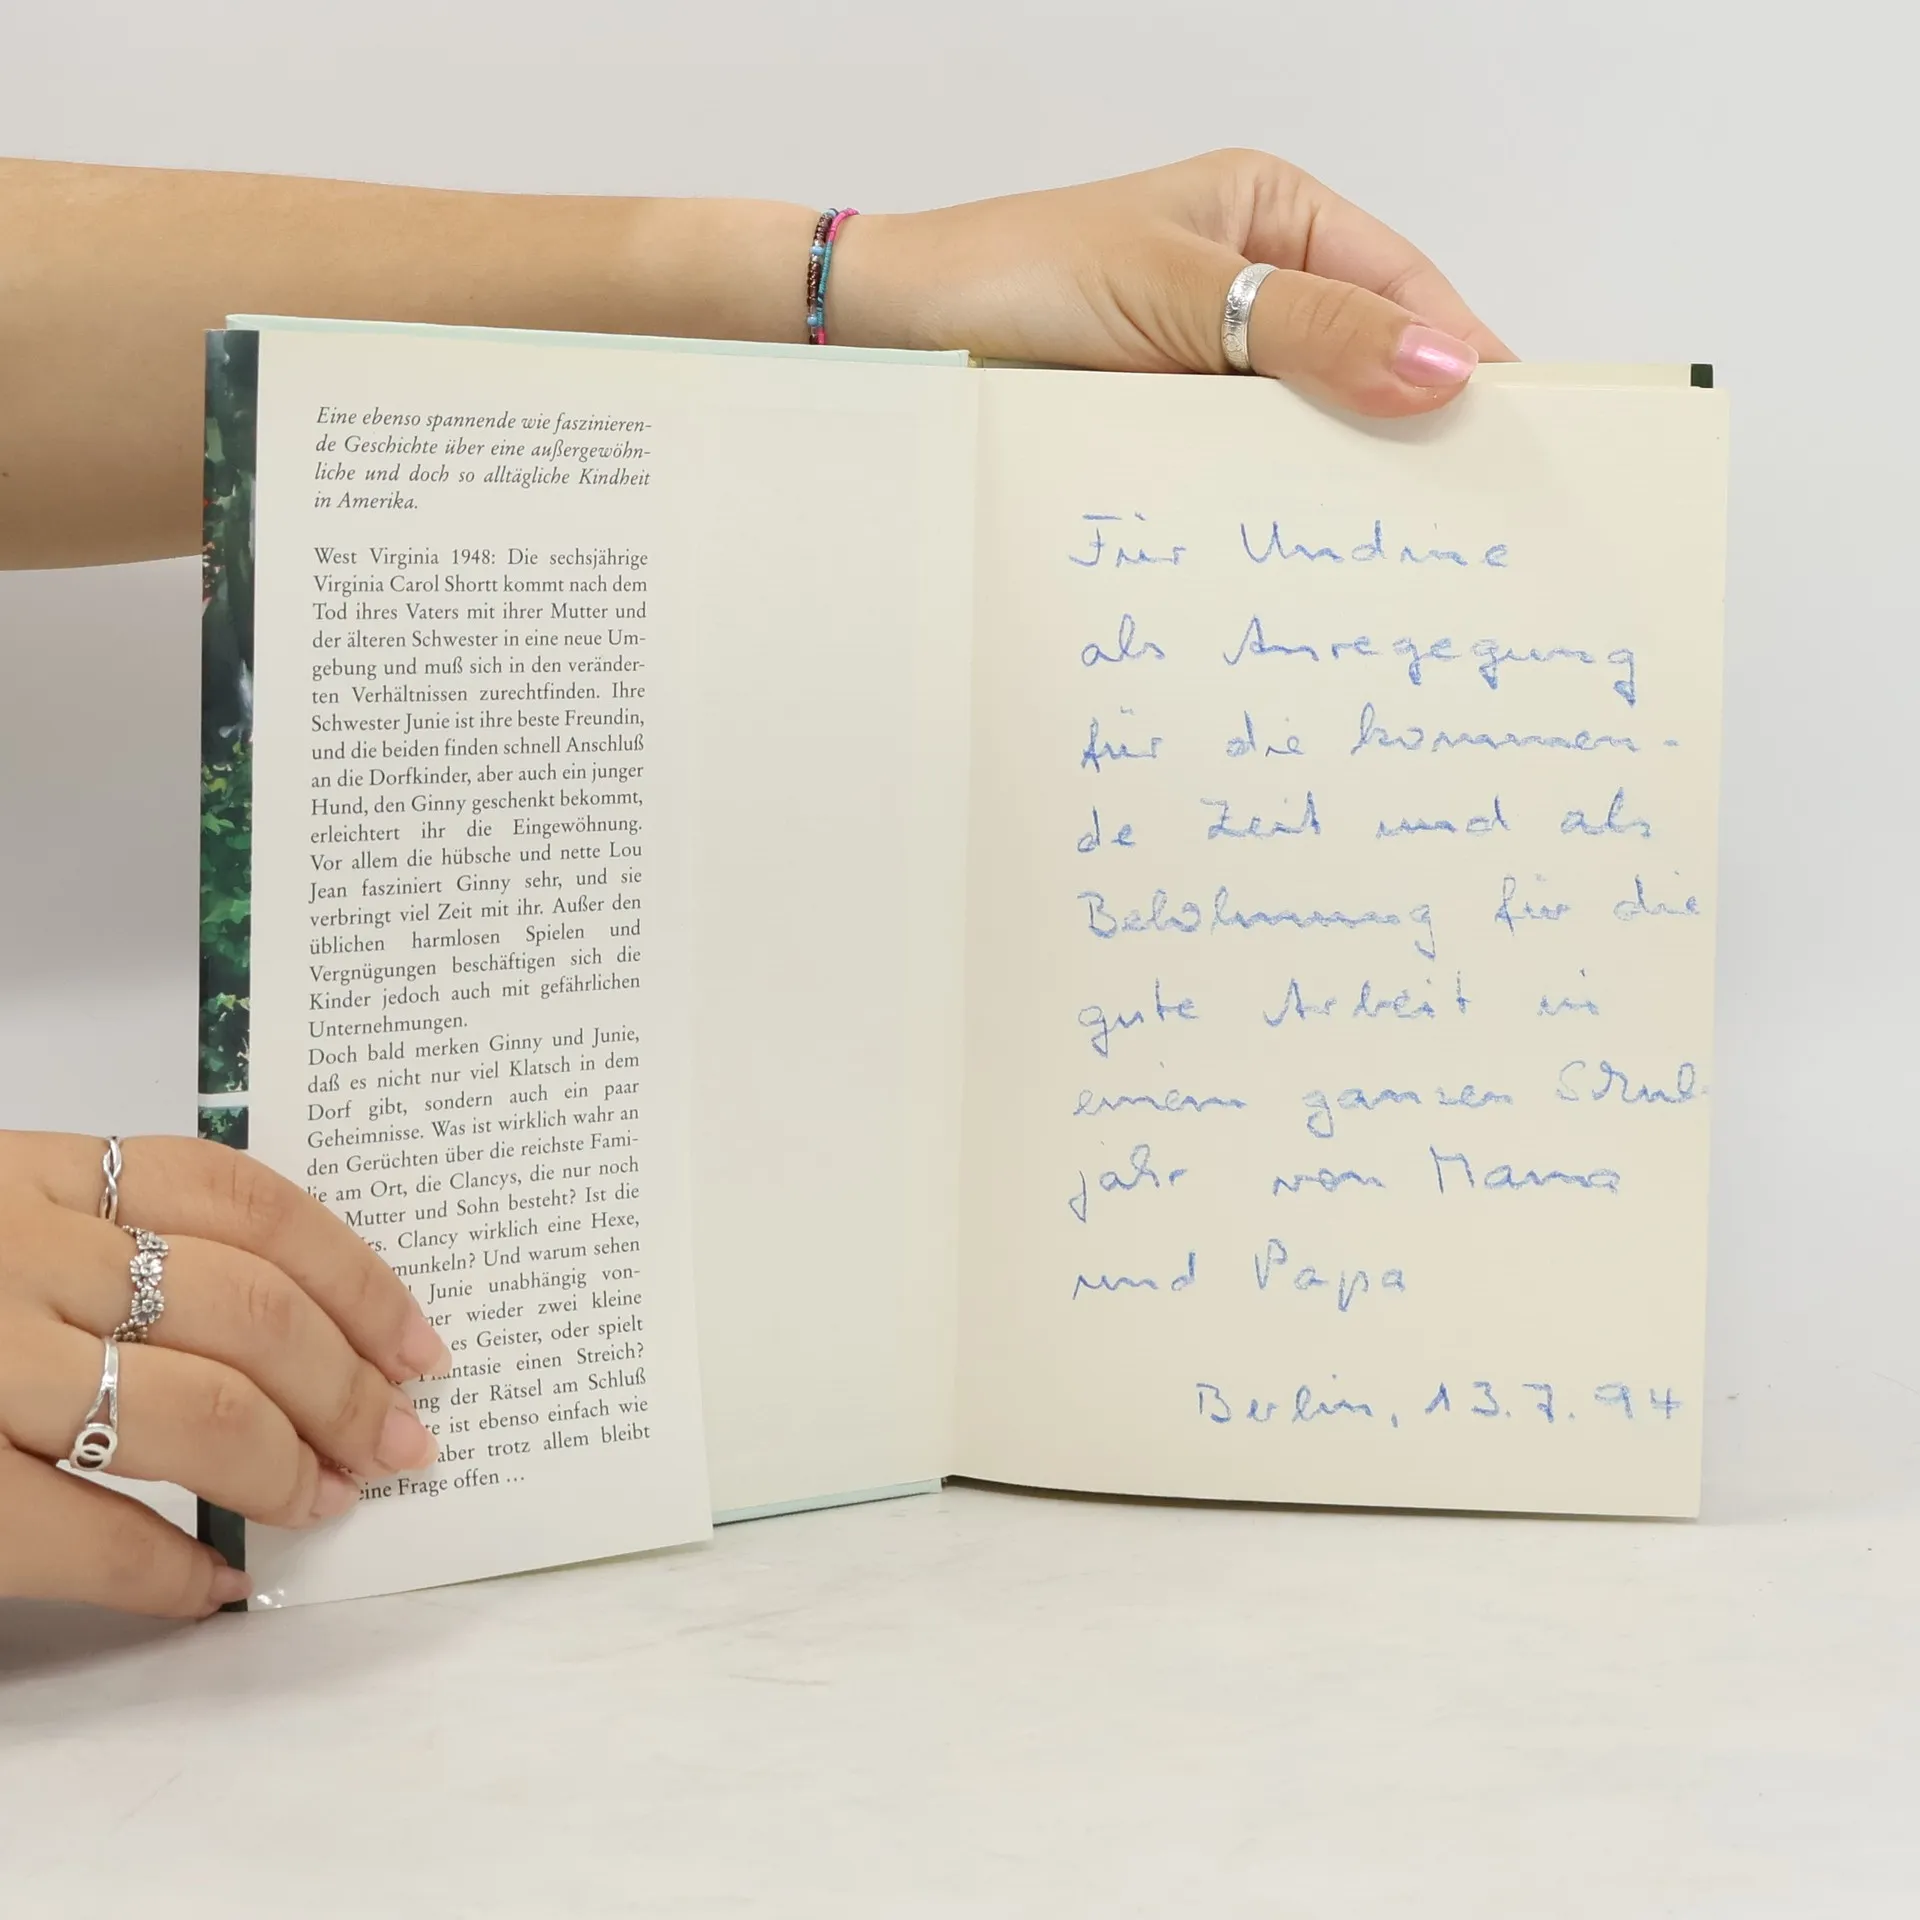 Eine ebenso spannende wie faszinieren-
de Geschichte über eine außergewöhn-
liche und doch so alltägliche Kindheit
in Amerika.
West Virginia 1948: Die sechsjährige
Virginia Carol Shortt kommt nach dem
Tod ihres Vaters mit ihrer Mutter und
der älteren Schwester in eine neue Um-
gebung und muß sich in den veränder-
ten Verhältnissen zurechtfinden. Ihre
Schwester Junie ist ihre beste Freundin,
und die beiden finden schnell Anschluß
an die Dorfkinder, aber auch ein junger
Hund, den Ginny geschenkt bekommt,
erleichtert ihr die Eingewöhnung.
Vor allem die hübsche und nette Lou
Jean fasziniert Ginny sehr, und sie
verbringt viel Zeit mit ihr. Außer den
üblichen harmlosen Spielen und
Vergnügungen beschäftigen sich die
Kinder jedoch auch mit gefährlichen
Unternehmungen.
Doch bald merken Ginny und Junie,
daß es nicht nur viel Klatsch in dem
Dorf gibt, sondern auch ein paar
Geheimnisse. Was ist wirklich wahr an
den Gerüchten über die reichste Fami-
lie am Ort, die Clancys, die nur noch
Mutter und Sohn besteht? Ist die
Clancy wirklich eine Hexe,
munkeln? Und warum sehen
Junie unabhängig von-
wieder zwei kleine
es Geister, oder spielt
einen Streich?
der Rätsel am Schluß
ist ebenso einfach wie
aber trotz allem bleibt
eine Frage offen ...
Für Undine
als Anregegung
für die kommen-
de Zeit und als
Belohnung für die
gute Arbeit in
einem ganzen Schul-
jahr von Mama
und Papa
Berlin, 13.7.94